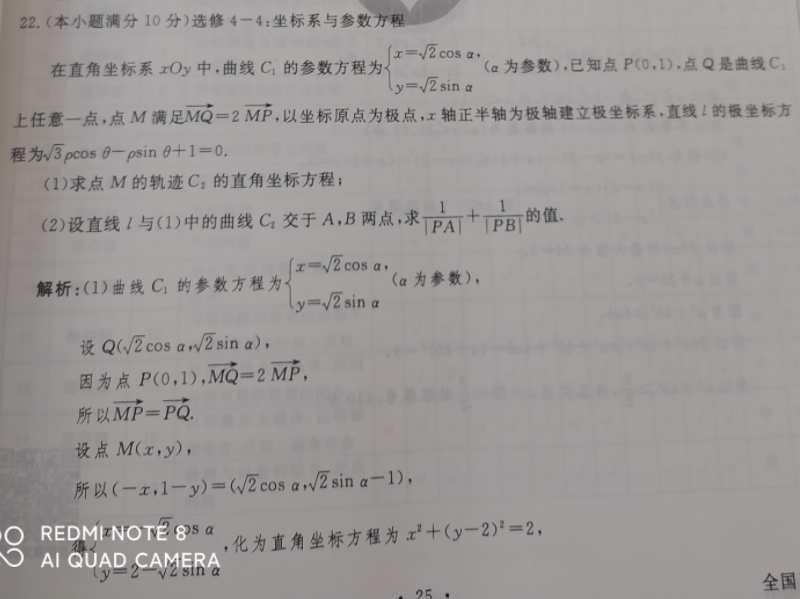 22.(本小题满分 10 分)选修 4-4:坐标系与参数方程
在直角坐标系 xOy 中,曲线 C₁ 的参数方程为{x=√2cos α, y=√2sin α (α 为参数),已知点 P(0,1),点 Q 是曲线 C₁
上任意一点,点 M 满足MQ→=2 MP→,以坐标原点为极点,x 轴正半轴为极轴建立极坐标系,直线 l 的极坐标方
程为√3ρcos θ-ρsin θ+1=0.
(1)求点 M 的轨迹 C₂ 的直角坐标方程;
(2)设直线 l 与(1)中的曲线 C₂ 交于 A,B 两点,求1/|PA|+1/|PB|的值.
解析:(1)曲线 C₁ 的参数方程为{x=√2cos α, y=√2sin α (α 为参数),
设 Q(√2cos α,√2sin α),
因为点 P(0,1),MQ→=2 MP→,
所以MP→=PQ→.
设点 M(x,y),
所以(-x,1-y)=(√2cos α,√2sin α-1),
得{x=-√2cos α y=2-√2sin α ,化为直角坐标方程为 x²+(y-2)²=2,
REDMI NOTE 8
AI QUAD CAMERA
· 25 ·
全国